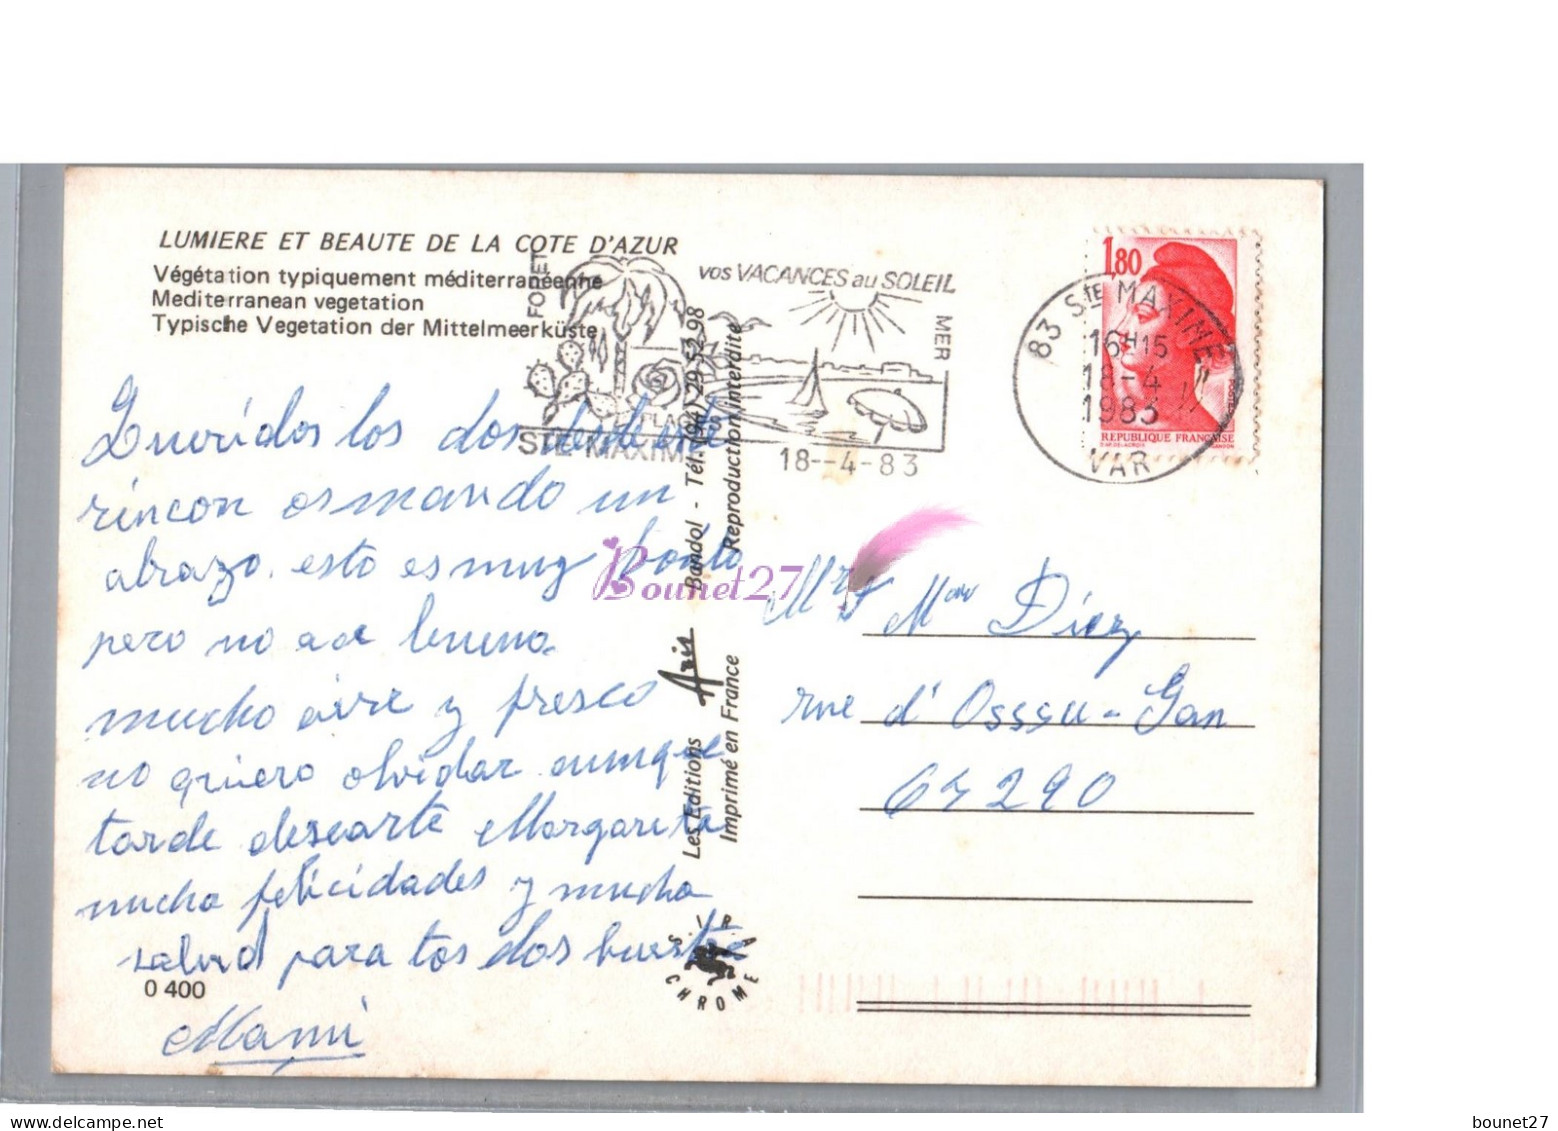 LUMIERE ET BEAUTE DE LA COTE D'AZUR
Végétation typiquement méditerranéenne
Mediterranean vegetation
Typische Vegetation der Mittelmeerküste
FORET
vos VACANCES au SOLEIL
MER
PLAGES
STE MAXIME
18--4-83
1,80
REPUBLIQUE FRANÇAISE
83 STE MAXIME
16H15
18-4
1983
VAR
Queridos los dos desde este
rincon os mando un
abrazo. esto es muy bonito
pero no ace bueno.
mucho aire y fresco
no quiero olvidar aunque
tarde desearte Margarita
mucha felicidades y mucha
salud para tos dos
Mami
0 400
Les Editions Aris Bandol - Tél. (94) 29.52.98
Imprimé en France Reproduction interdite
SIRA CHROME
Bounet27
Mrs Mme Diez
rue d'Osssu-Gan
64290
bounet27